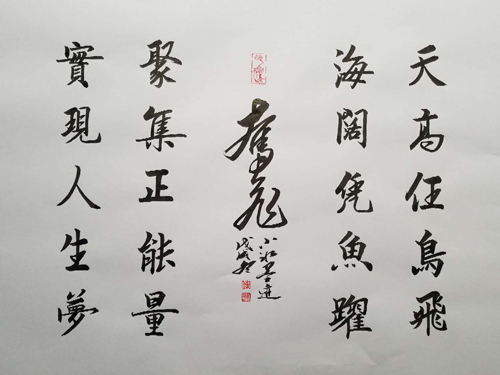 天高任鳥飛
海闊凭魚躍
奮飛
聚集正能量
實現人生夢